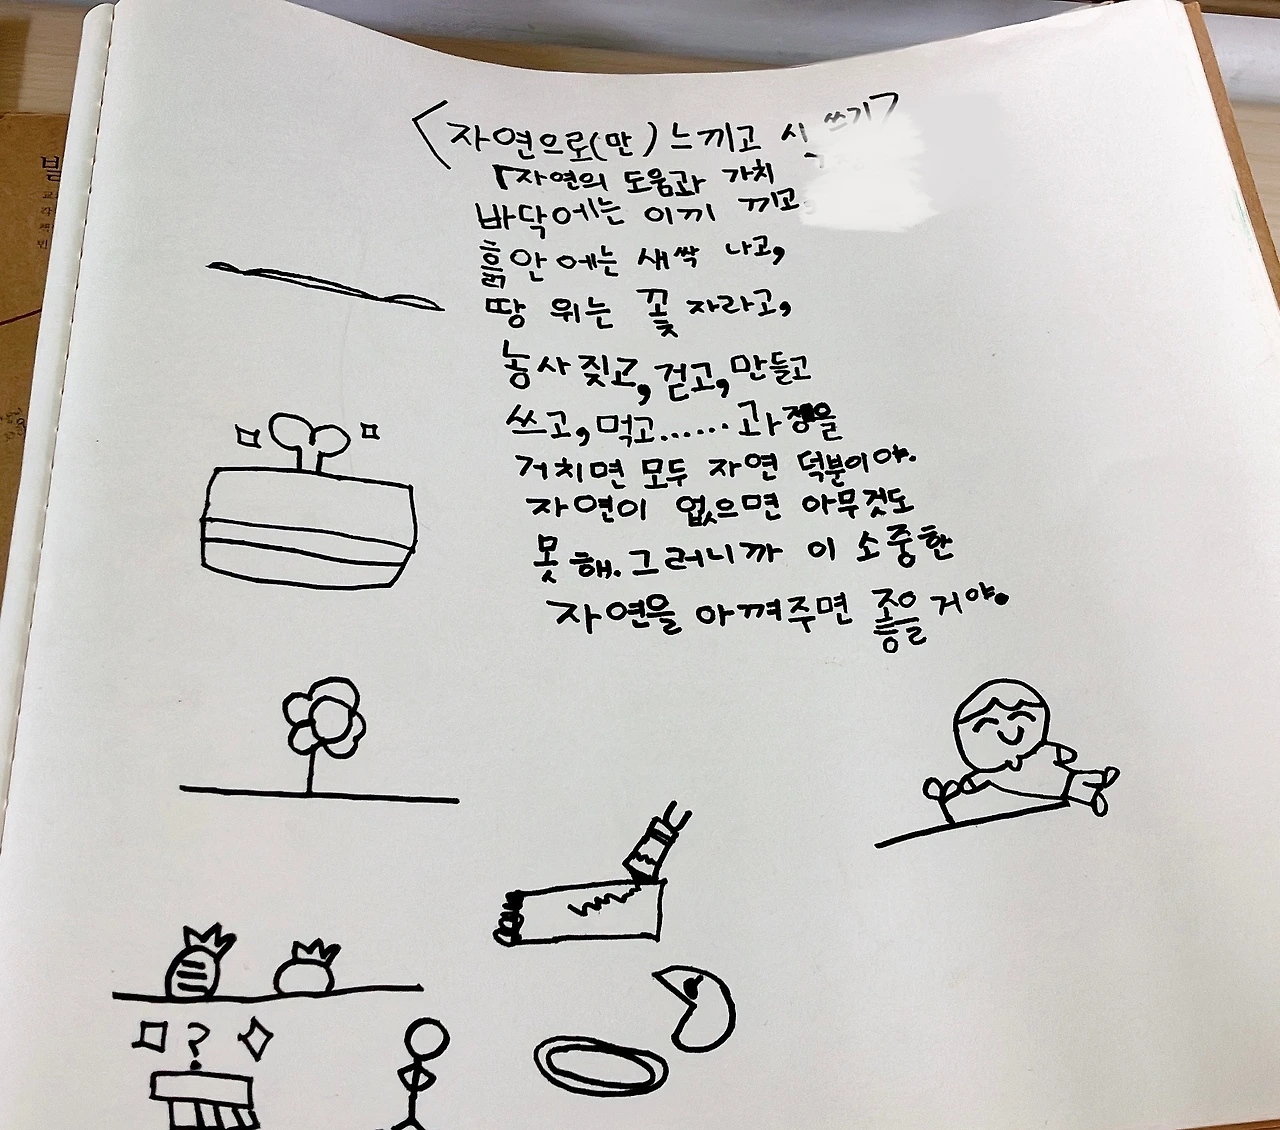 <자연으로(만) 느끼고 시 쓰기>
「자연의 도움과 가치
바닥에는 이끼 끼고,
흙안에는 새싹 나고,
땅 위는 꽃 자라고,
농사 짖고, 걷고, 만들고
쓰고, 먹고...... 과정을
거치면 모두 자연 덕분이야.
자연이 없으면 아무것도
못 해. 그러니까 이 소중한
자연을 아껴주면 좋을 거야.
?